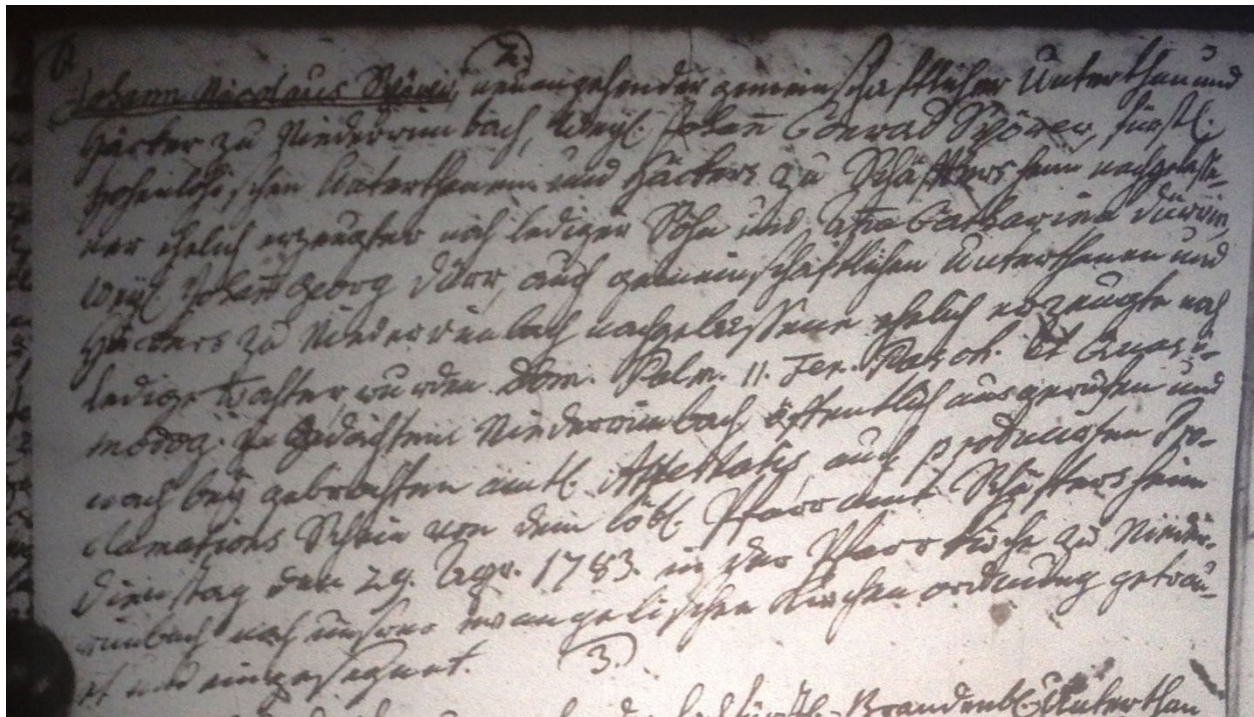 2.
Johann Nicolaus Spörer, neuangehender gemeinschaftlicher Unterthan und
Häcker zu Niederrimbach, weyl. Johann Conrad Spörer, fürstl.
Hohenlohischen Unterthanen und Häckers zu Schäftersheim nachgelaße-
ner ehelich erzeugter noch lediger Sohn und Catharina Dürrin,
weyl. Johann Georg Dürr, auch gemeinschaftlichen Unterthanen und
Häckers zu Niederrimbach nachgelassene ehelich erzeugte noch
ledige Tochter wurden Dom. Palm. II. Fer. Pasch. et Quasi-
modog. in gedachtem Niederrimbach öffentlich ausgerufen und
nach beygebrachten amtl. Attestatis auch producirten Pro-
clamations Schein von dem löbl. Pfarramt Schäftersheim
Dienstag den 29. Apr. 1783. in der Pfarrkirche zu Nieder-
rimbach nach unserer evangelischen Kirchenordnung getrau-
et und eingesegnet.
3.
Brandenbl. Unterthan